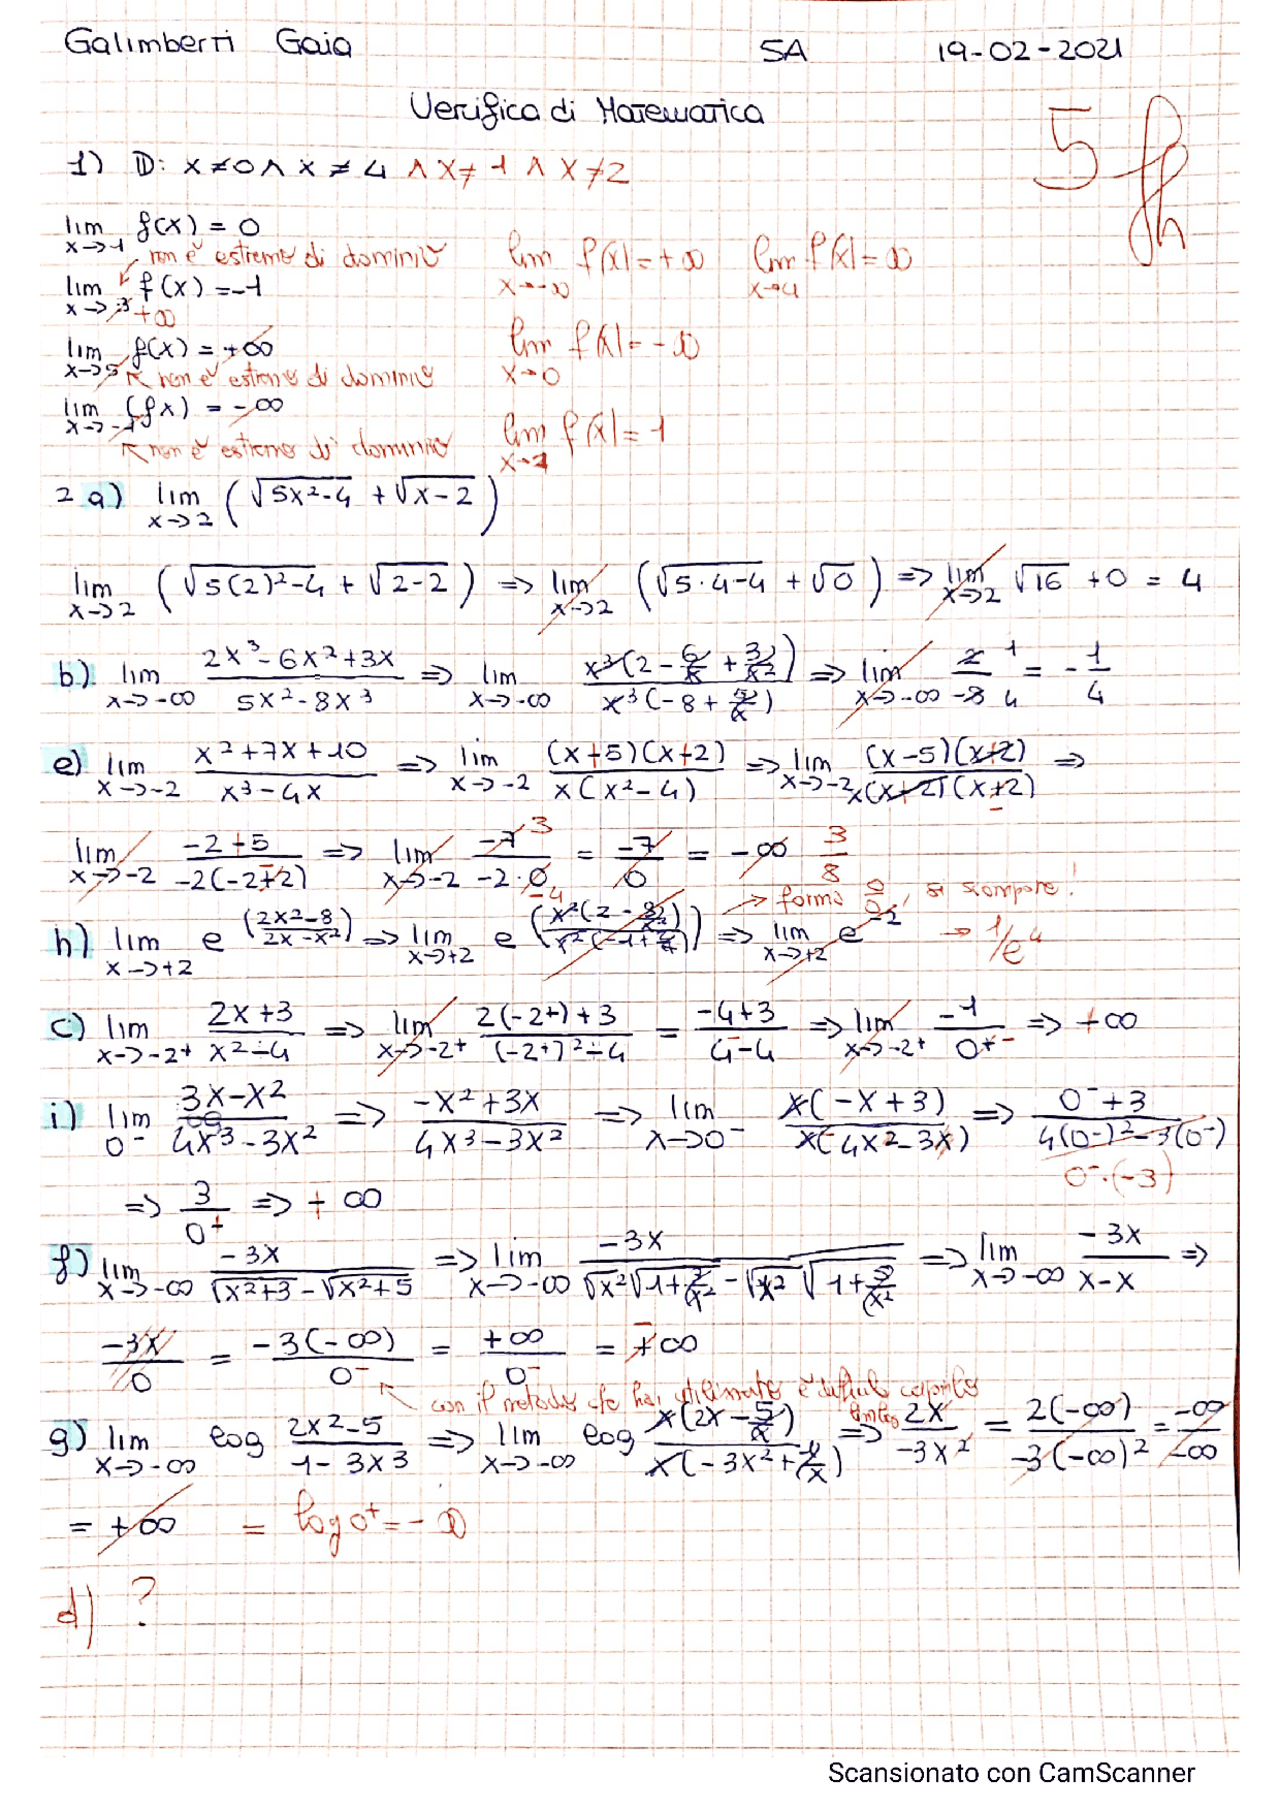 Galimberti Gaia 5A 19-02-2021
Verifica di Matematica
5
1) D: x ≠ 0 ∧ x ≠ 4 ∧ x ≠ 1 ∧ x ≠ 2
lim x→1 f(x) = 0
non è estremo di dominio lim x→-∞ f(x) = +∞ lim x→4 f(x) = ∞
lim x→3 f(x) = -1
+∞
lim x→5 f(x) = +∞ lim x→0 f(x) = -∞
non è estremo di dominio
lim x→-1 (fx) = -∞ lim x→1 f(x) = 1
non è estremo di dominio
2 a) lim x→2 (√5x²-4 + √x-2)
lim x→2 (√5(2)²-4 + √2-2) => lim x→2 (√5·4-4 + √0) => lim x→2 √16 + 0 = 4
b) lim x→-∞ (2x³-6x²+3x)/(5x²-8x³) => lim x→-∞ x³(2 - 6/x + 3/x²)/x³(-8 + 5/x) => lim x→-∞ 2/-8 1/4 = -1/4
e) lim x→-2 (x²+7x+10)/(x³-4x) => lim x→-2 (x+5)(x+2)/x(x²-4) => lim x→-2 (x-5)(x+2)/x(x+2)(x+2) =>
lim x→-2 (-2+5)/-2(-2+2) => lim x→-2 -7/-2·0 3 -4 = -7/0 = -∞ 3/8
→ forma 0/0, si scompone!
h) lim x→+2 e^((2x²-8)/(2x-x²)) => lim x→+2 e^(x²(2 - 8/x²)/x²(-1+2/x)) => lim x→+2 e^-2 → 1/e⁴
c) lim x→-2+ (2x+3)/(x²-4) => lim x→-2+ (2(-2+)+3)/((-2+)²-4) = (-4+3)/(4-4) => lim x→-2+ -1/0+ - => +∞
i) lim 0- (3x-x²)/(4x³-3x²) => (-x²+3x)/(4x³-3x²) => lim x→0- x(-x+3)/x(4x²-3x) => (0-+3)/(4(0-)²-3(0-))
0-·(-3)
=> 3/0+ => +∞
f) lim x→-∞ -3x/(√x²+3 - √x²+5) => lim x→-∞ -3x/(√x²√1+3/x² - √x²√1+5/x²) => lim x→-∞ -3x/(x-x) =>
-3x/0 = -3(-∞)/0- = +∞/0- = +∞ -
con il metodo che hai utilizzato è difficile capirlo
g) lim x→-∞ log (2x²-5)/(1-3x³) => lim x→-∞ log x(2x - 5/x)/x(-3x² + 1/x) => 2x/-3x² = 2(-∞)/-3(-∞)² = -∞/-∞
= +∞ = log 0+ = -∞
d) ?
Scansionato con CamScanner